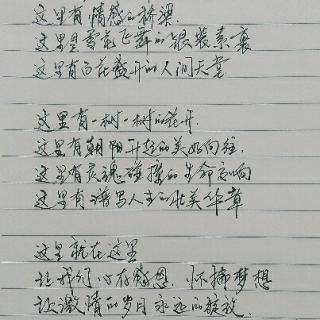 这里有情感的桥梁.
这里是雪花飞舞的银装素裹
这里有百花盛开的人间天堂
这里有一树一树的花开.
这里有朝阳升起的美好向往.
这里有灵魂碰撞的生命交响
这里有谱写人生的壮美华章
这里就在这里
让我们心存感恩. 怀揣梦想
让激情的岁月永远的绽放.